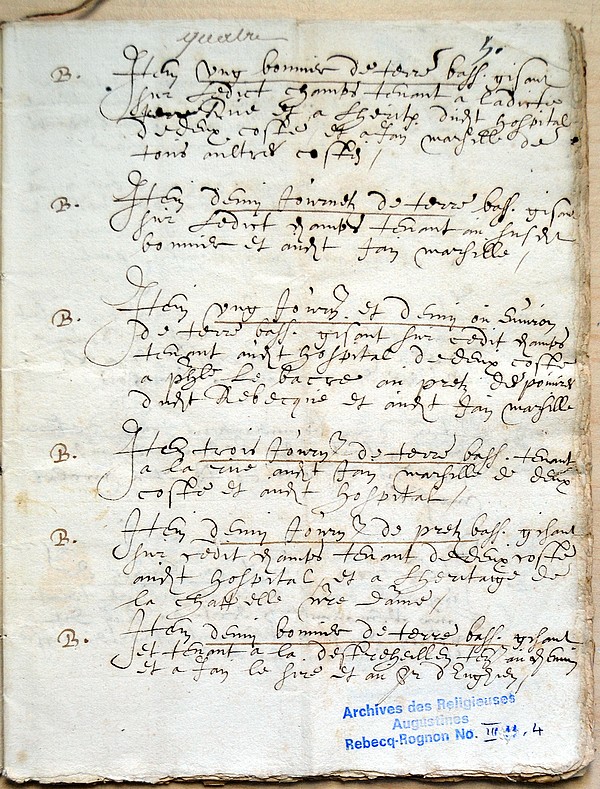 quatre
B. Item ung bonnier de terre bass. gisant
sur ledict champs tenant a ladicte
rue et a lherit. dudt hospital
de deux costé et a Jan marsille de
tous aultres costez /
B. Item demy Journel de terre bass. gisant
sur ledict champs tenant au susdt
bonnier et audt Jan marsille /
B. Item ung Journ. et demy ou environ
de terre bass. gisant sur cedit champs
tenant audt hospital de deux costé
a phle le bacre au pretz des pouvres
dudt Rebecque et audt Jan marsille
B. Item trois Journ. de terre bass. tenant
a la rue audt Jan marsille de deux
costé et audt hospital /
B. Item demy Journ. de pretz bass. gisant
sur cedit champs tenant de deux costé
audt hospital et a lheritaige de
la chappelle nre dame /
B. Item demy bonnier de terre bass. gisant
et tenant a la
et a Jan le sire et au Sr. d'Enghien /
Archives des Religieuses
Augustines
Rebecq-Rognon No. III . 4